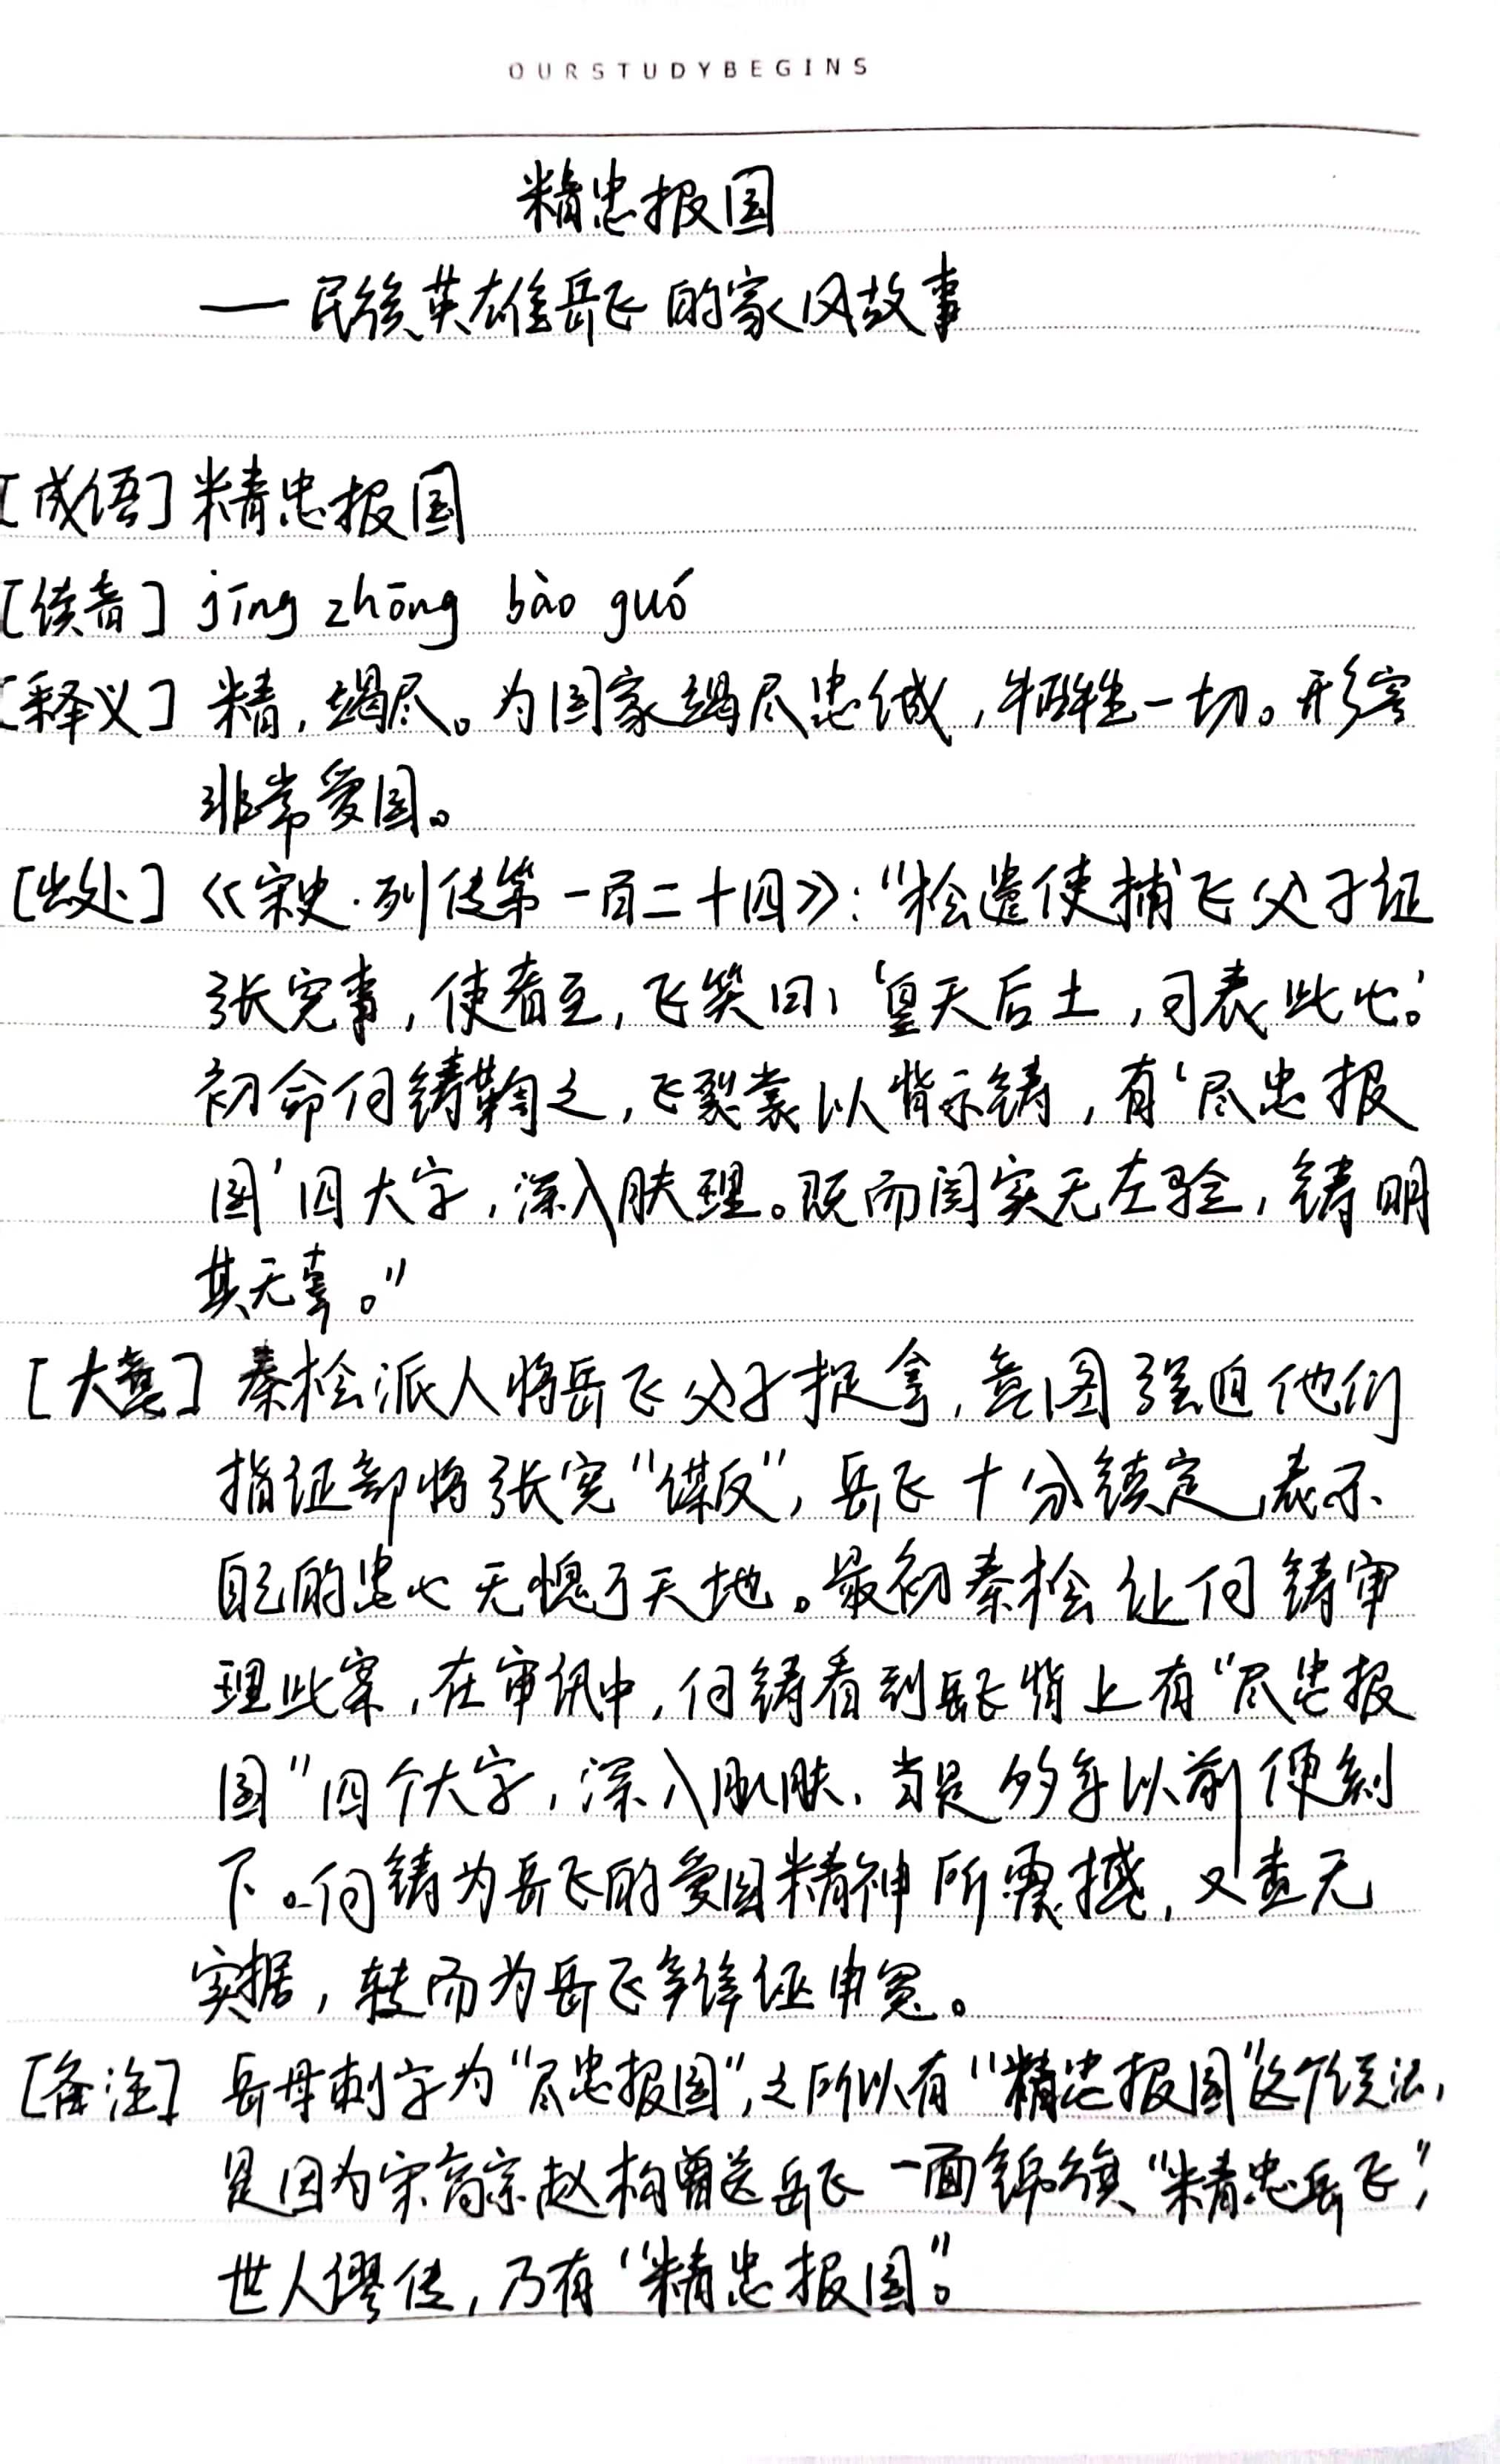 OURSTUDYBEGINS
精忠报国
——民族英雄岳飞的家风故事
[成语] 精忠报国
[读音] jīng zhōng bào guó
[释义] 精,竭尽。为国家竭尽忠诚,牺牲一切。形容
非常爱国。
[出处] 《宋史·列传第一百二十四》:“桧遣使捕飞父子证
张宪事,使者至,飞笑曰:‘皇天后土,可表此心。’
初命何铸鞫之,飞裂裳以背示铸,有‘尽忠报
国’四大字,深入肤理。既而阅实无左验,铸明
其无辜。”
[大意] 秦桧派人将岳飞父子捉拿,意图强迫他们
指证部将张宪“谋反”,岳飞十分镇定,表示
自己的忠心无愧于天地。最初秦桧让何铸审
理此案,在审讯中,何铸看到岳飞背上有“尽忠报
国”四个大字,深入肌肤,当是多年以前便刻
下。何铸为岳飞的爱国精神所震撼,又查无
实据,转而为岳飞辩证申冤。
[备注] 岳母刺字为“尽忠报国”,之所以有“精忠报国”这个说法,
是因为宋高宗赵构曾送岳飞一面锦旗“精忠岳飞”,
世人谬传,乃有“精忠报国”。